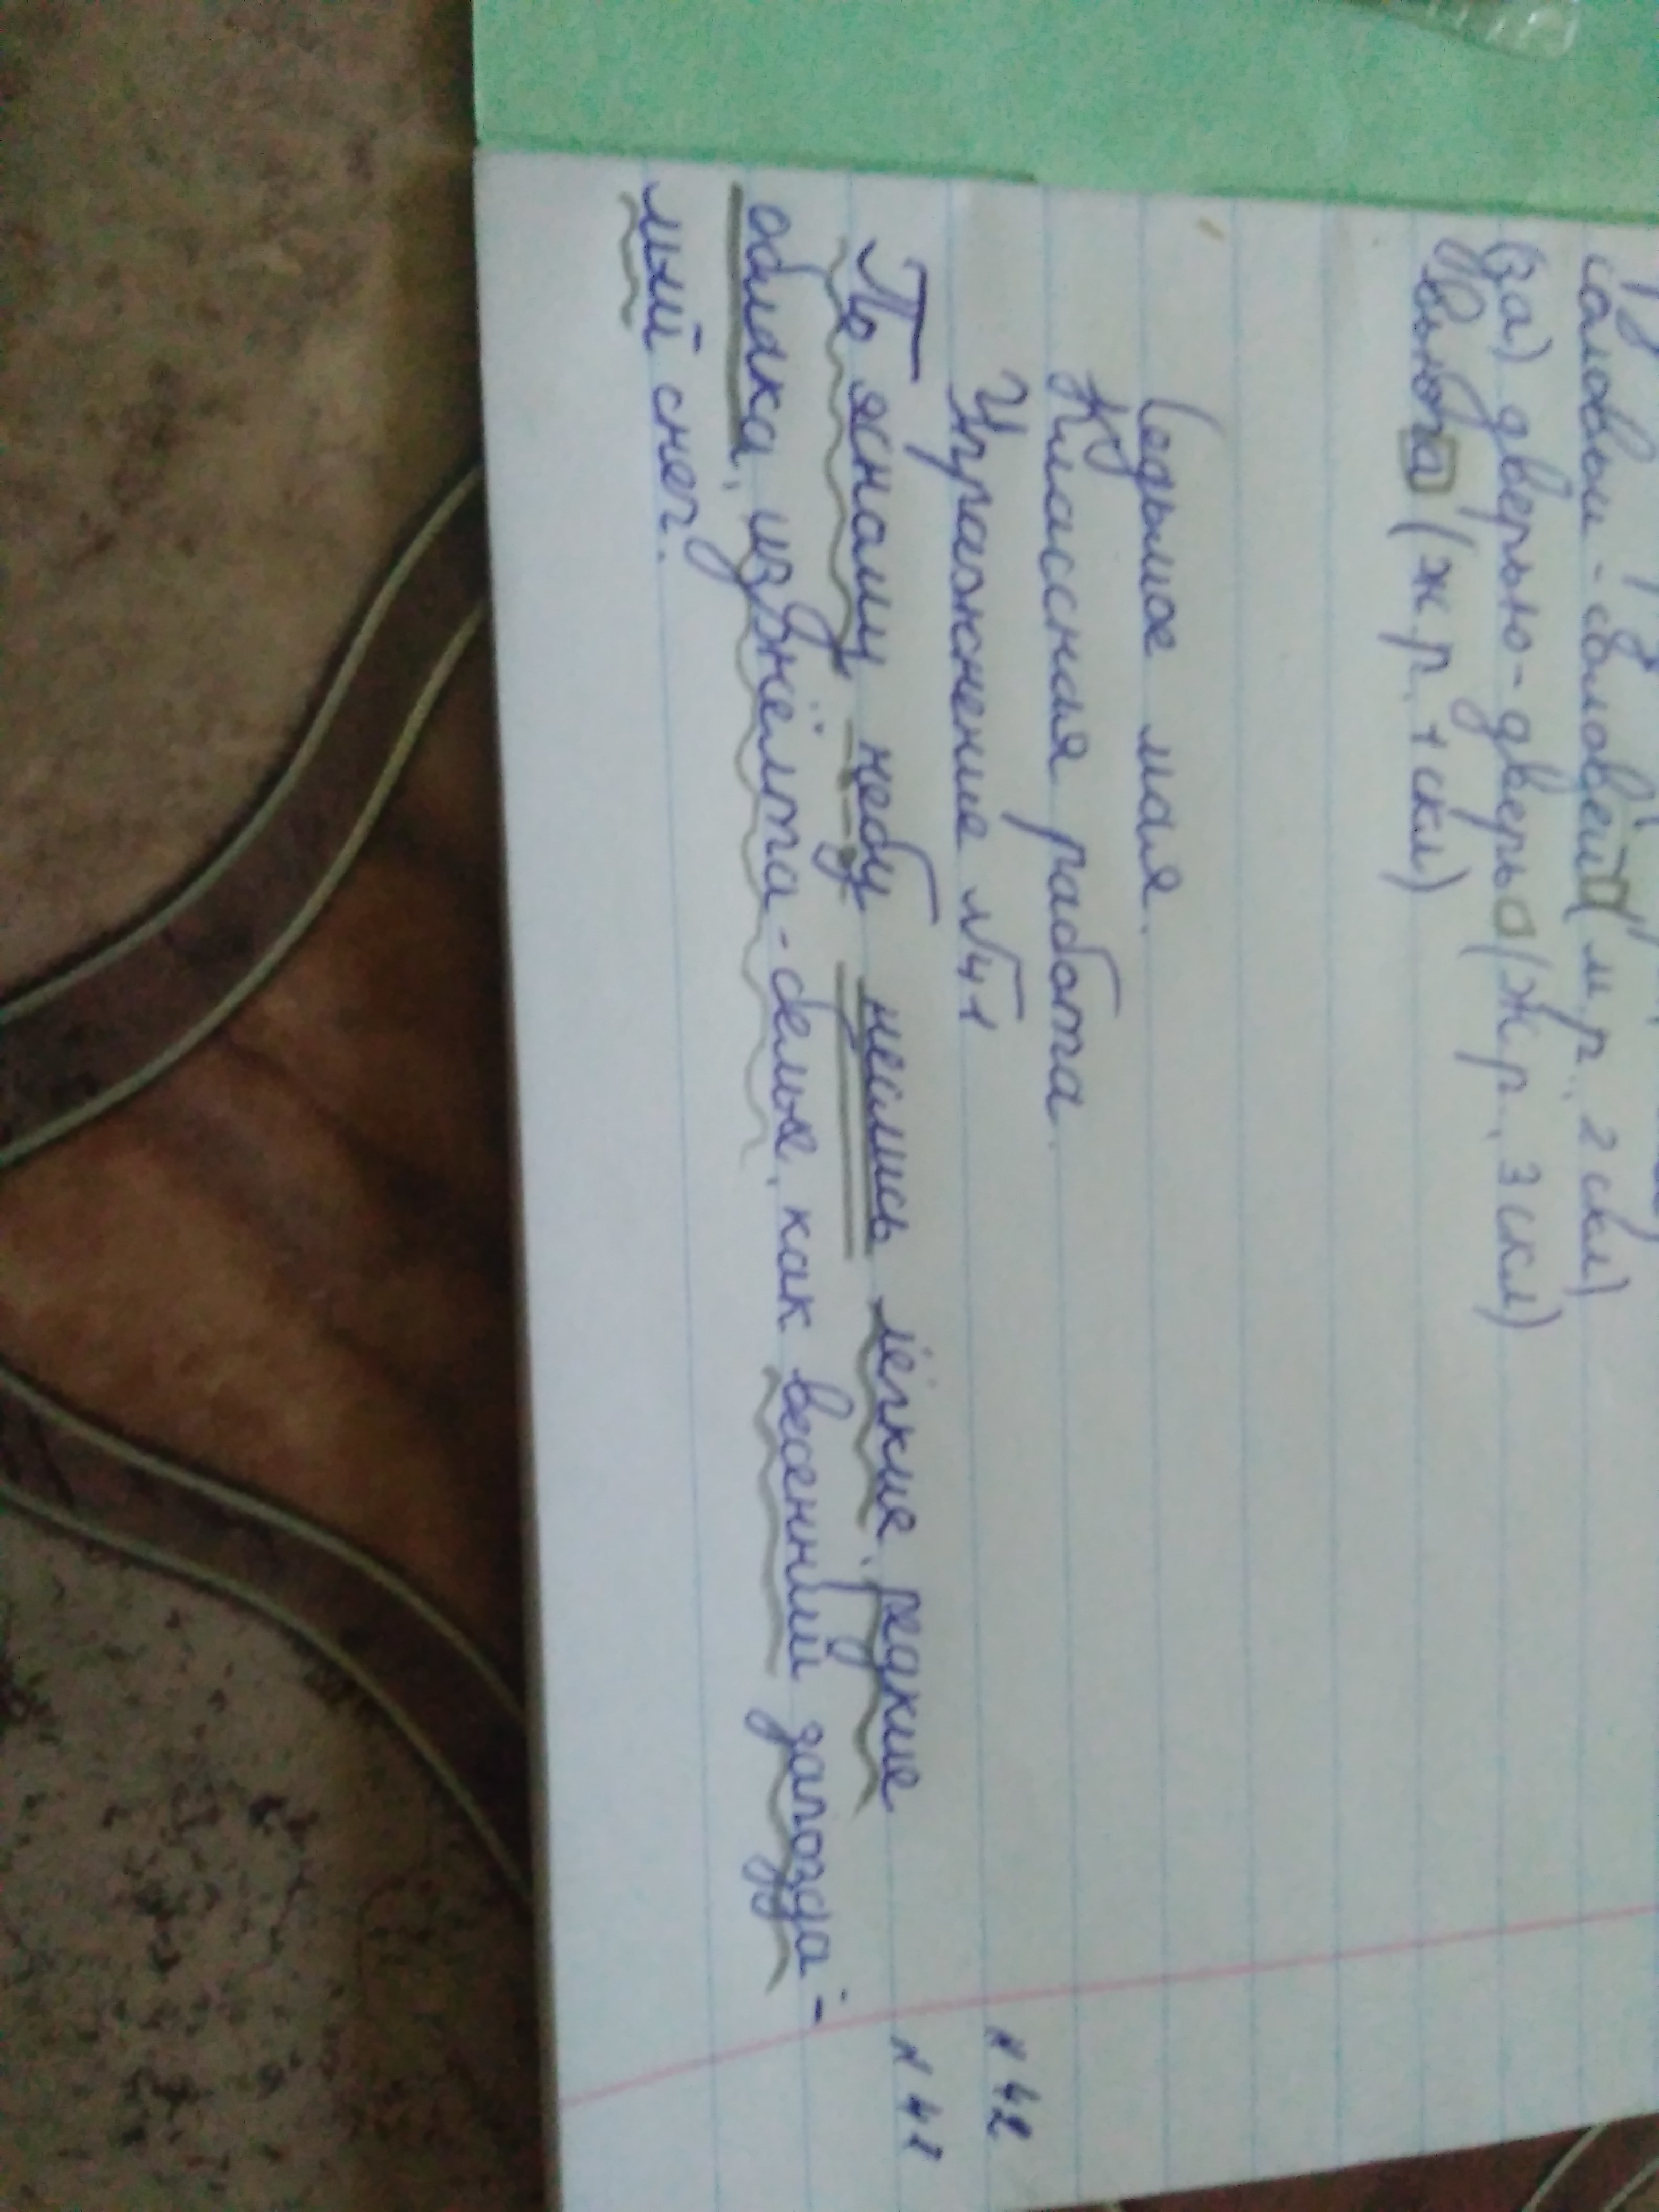 соловьи - соловей (м.р., 2 скл)
(за) дверью - дверь (ж.р., 3 скл)
вьюга (ж.р. 1 скл)
Седьмое мая.
Классная работа.
Упражнение №41
По ясному небу неслись лёгкие, редкие
облака, изжёлта-белые, как весенний запозда-
лый снег.
№ 42
№ 41